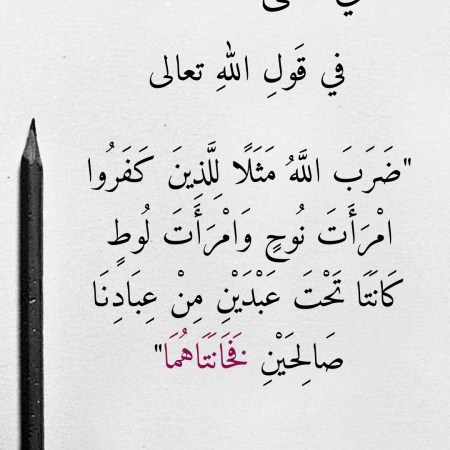 في قَولِ اللهِ تعالى
"ضَرَبَ اللَّهُ مَثَلًا لِلَّذِينَ كَفَرُوا
امْرَأَتَ نُوحٍ وَامْرَأَتَ لُوطٍ
كَانَتَا تَحْتَ عَبْدَيْنِ مِنْ عِبَادِنَا
صَالِحَيْنِ فَخَانَتَاهُمَا"